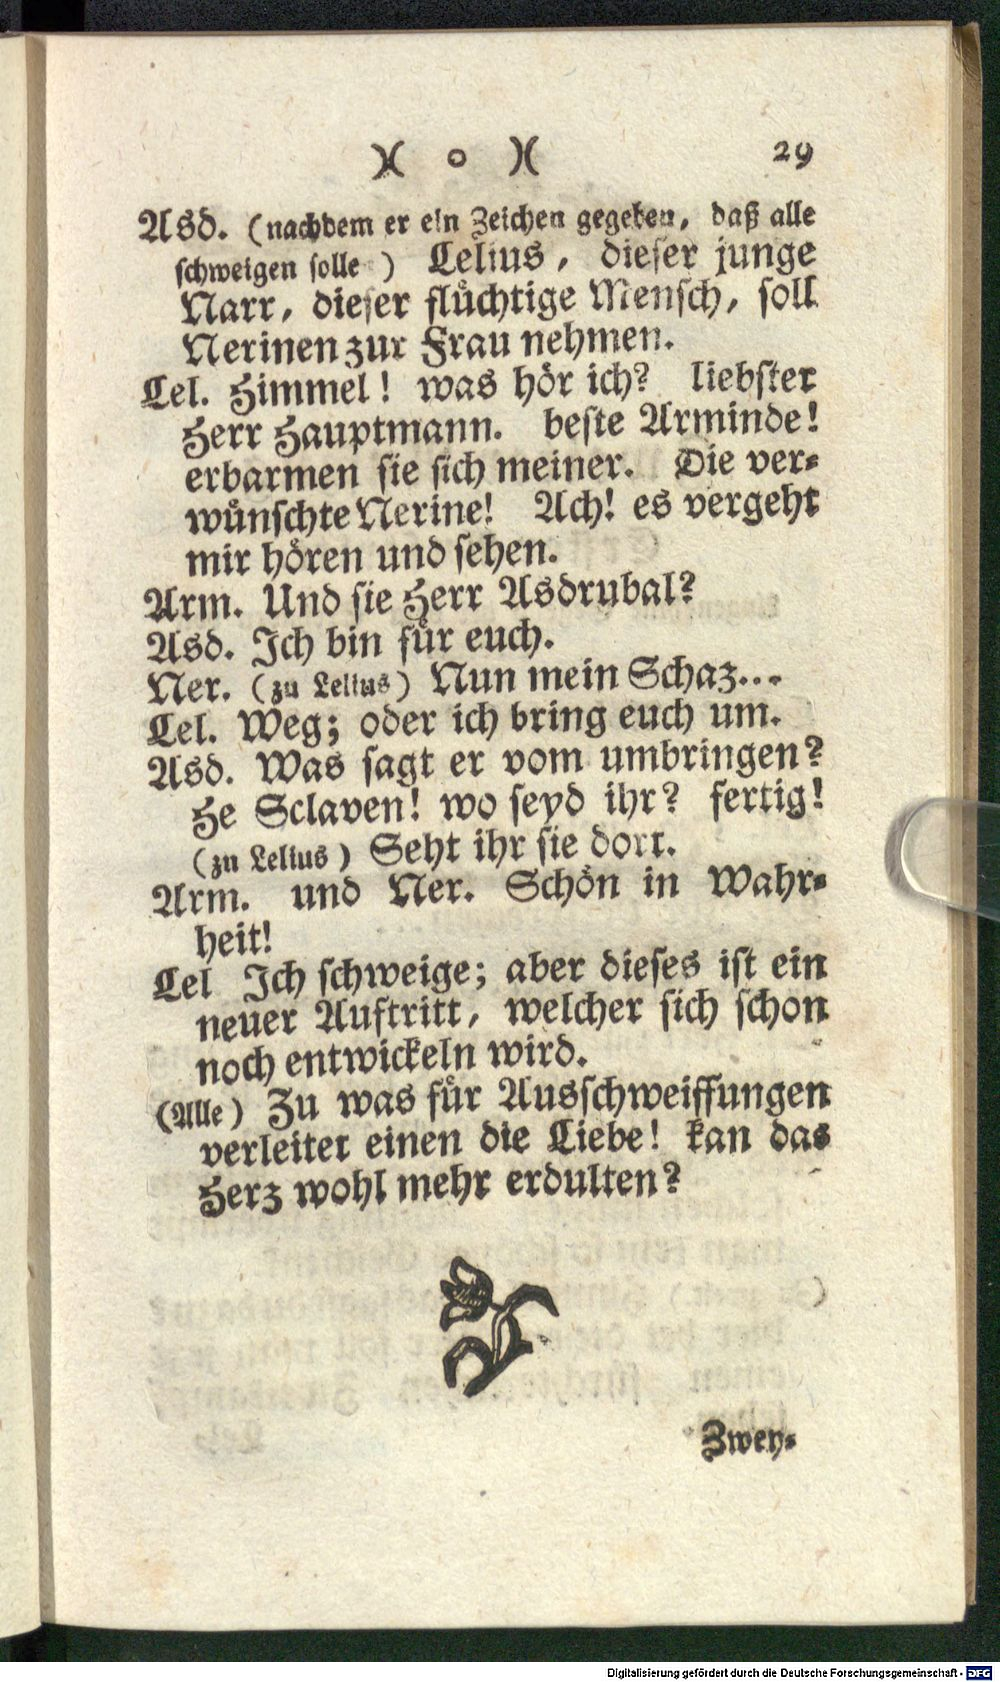 )( o )( 29
Asd. (nachdem er ein Zeichen gegeben, daß alle
schweigen solle ) Lelius, dieser junge
Narr, dieser flüchtige Mensch, soll
Nerinen zur Frau nehmen.
Lel. Himmel! was hör ich? liebster
Herr Hauptmann. beste Arminde!
erbarmen sie sich meiner. Die ver-
wünschte Nerine! Ach! es vergeht
mir hören und sehen.
Arm. Und sie Herr Asdrubal?
Asd. Ich bin für euch.
Ner. (zu Lelius) Nun mein Schaz...
Lel. Weg; oder ich bring euch um.
Asd. Was sagt er vom umbringen?
He Sclaven! wo seyd ihr? fertig!
(zu Lelius) Seht ihr sie dort.
Arm. und Ner. Schön in Wahr-
heit!
Lel Ich schweige; aber dieses ist ein
neuer Auftritt, welcher sich schon
noch entwickeln wird.
(Alle) Zu was für Ausschweiffungen
verleitet einen die Liebe! kan das
Herz wohl mehr erdulten?
Zwey-
Digitalisierung gefördert durch die Deutsche Forschungsgemeinschaft - DFG